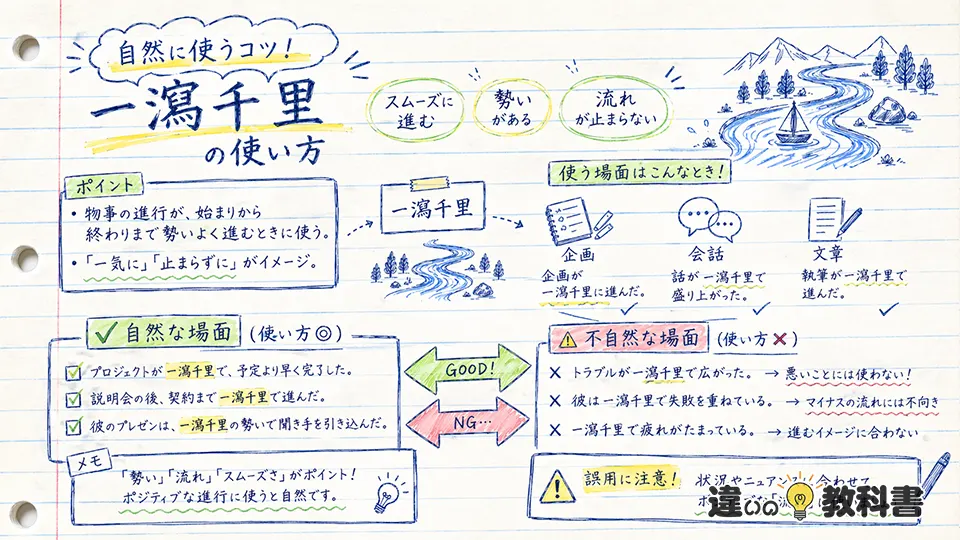 自然に使うコツ！
一瀉千里
の使い方
スムーズに
進む
勢い
がある
流れ
が止まらない
ポイント
・物事の進行が、始まりから
終わりまで勢いよく進むときに使う。
・「一気に」「止まらずに」がイメージ。
一瀉千里
使う場面はこんなとき！
企画
企画が
一瀉千里に進んだ。
会話
話が一瀉千里で
盛り上がった。
文章
執筆が一瀉千里で
進んだ。
自然な場面（使い方◎）
プロジェクトが一瀉千里で、予定より早く完了した。
説明会の後、契約まで一瀉千里で進んだ。
彼のプレゼンは、一瀉千里の勢いで聞き手を引き込んだ。
GOOD!
NG…
不自然な場面（使い方✕）
✕ トラブルが一瀉千里で広がった。→ 悪いことには使わない！
✕ 彼は一瀉千里で失敗を重ねている。→ マイナスの流れには不向き
✕ 一瀉千里で疲れがたまっている。→ 進むイメージに合わない
メモ
「勢い」「流れ」「スムーズさ」がポイント！
ポジティブな進行に使うと自然です。
誤用に注意！
状況やニュアンス 合わせて
違いの教科書